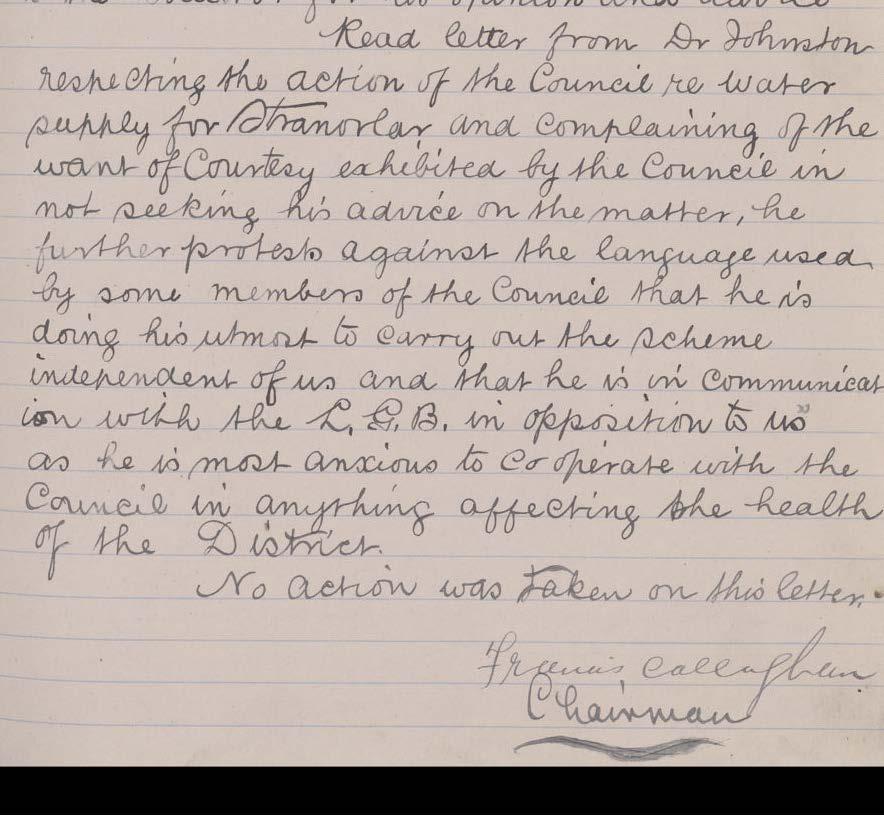 for his opinion and advice
Read letter from Dr Johnston
respecting the action of the Council re water
supply for Stranorlar and complaining of the
want of Courtesy exhibited by the Council in
not seeking his advice on the matter, he
further protests against the language used
by some members of the Council that he is
doing his utmost to carry out the scheme
independent of us and that he is in communicat
ion with the L. G. B. in opposition to us
as he is most anxious to Co operate with the
Council in anything affecting the health
of the District.
No action was taken on this letter.
Francis Callaghan
Chairman